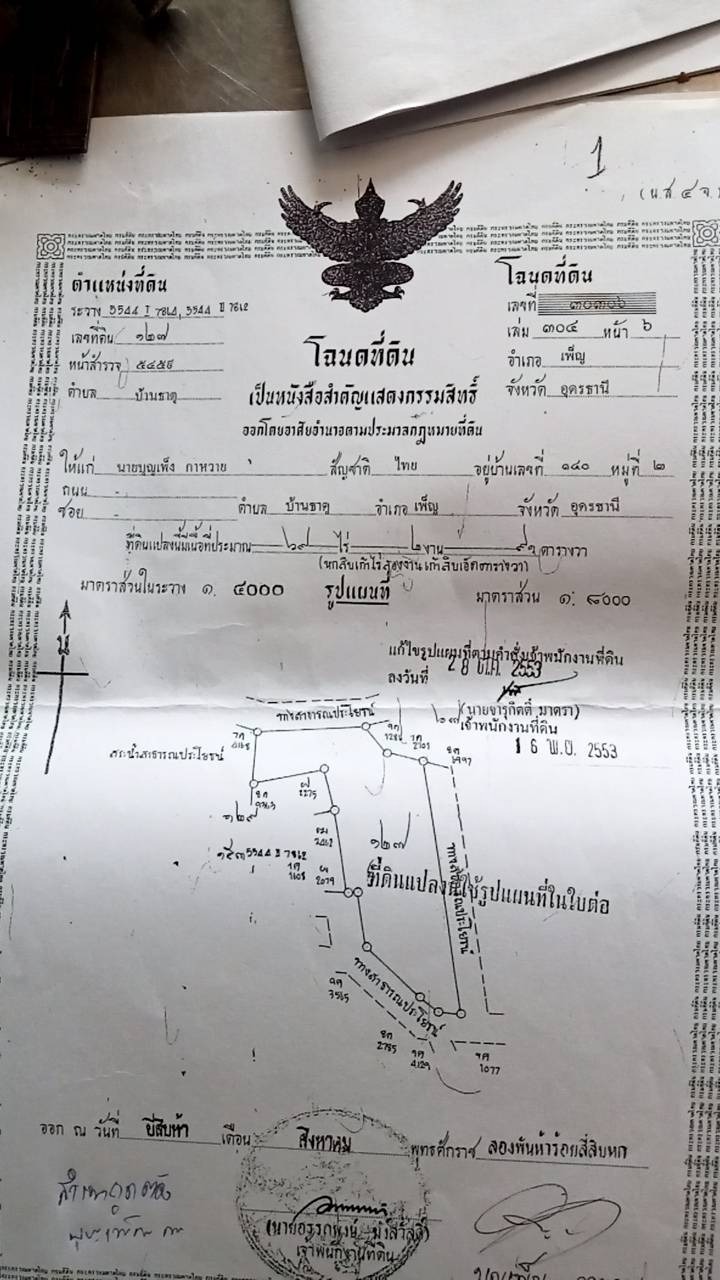 1
(น.ส ๔ จ.)
ตำแหน่งที่ดิน
ระวาง 5544 I 7814, 5544 II 7812
เลขที่ดิน ๑๒๗
หน้าสำรวจ ๕๔๕๕
ตำบล บ้านธาตุ
โฉนดที่ดิน
เลขที่ ๓๐๓๐๖
เล่ม ๓๐๔ หน้า ๖
อำเภอ เพ็ญ
จังหวัด อุดรธานี
โฉนดที่ดิน
เป็นหนังสือสำคัญแสดงกรรมสิทธิ์
ออกโดยอาศัยอำนาจตามประมวลกฎหมายที่ดิน
ให้แก่ นายบุญเพ็ง กาหวาย สัญชาติ ไทย อยู่บ้านเลขที่ ๑๔๐ หมู่ที่ ๒
ถนน -
ซอย - ตำบล บ้านธาตุ อำเภอ เพ็ญ จังหวัด อุดรธานี
ที่ดินแปลงนี้มีเนื้อที่ประมาณ ๖๙ ไร่ ๒ งาน ๙๑ ตารางวา
(หกสิบเก้าไร่สองงานเก้าสิบเอ็ดตารางวา)
มาตราส่วนในระวาง ๑: ๔๐๐๐ รูปแผนที่ มาตราส่วน ๑: ๘๐๐๐
น
แก้ไขรูปแผนที่ตามคำสั่งเจ้าพนักงานที่ดิน
ลงวันที่ 2553
(นายจารุกิตติ์ มาตรา)
เจ้าพนักงานที่ดิน
16 พ.ย. 2553
ทางสาธารณประโยชน์
สระน้ำสาธารณประโยชน์
2101
2275
๑๒๙
๑๒๗
๑๕๓ 5544 II 7812
2079
ที่ดินแปลงนี้ใช้รูปแผนที่ในใบต่อ
ทางสาธารณประโยชน์
ทางสาธารณประโยชน์
3565
2785
4129
1077
ออก ณ วันที่ ยี่สิบห้า เดือน สิงหาคม พุทธศักราช สองพันห้าร้อยสี่สิบหก
เจ้าพนักงานที่ดิน